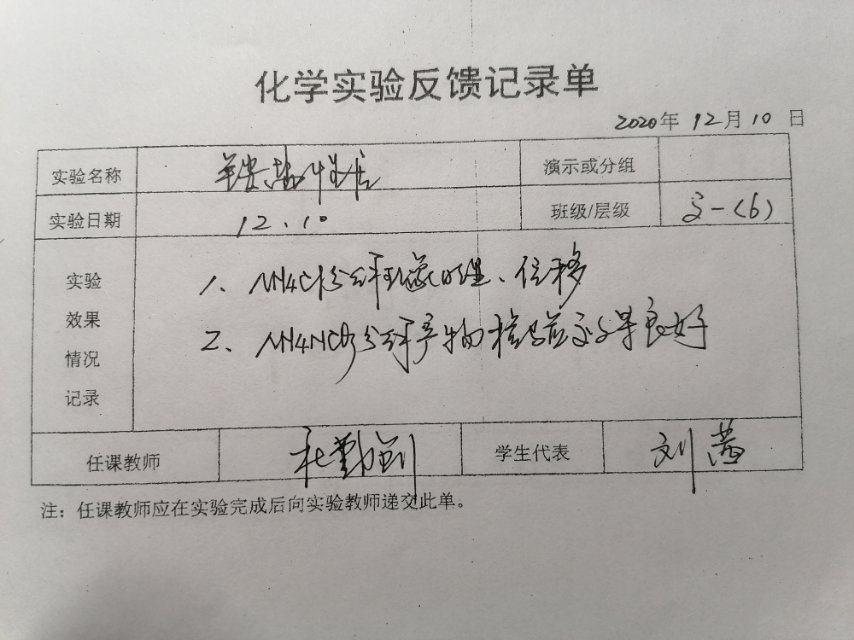 化学实验反馈记录单
2020年 12月 10 日
实验名称 铵盐性质 演示或分组
实验日期 12.10 班级/层级 高一(6)
实验效果情况记录
1、NH4Cl分解现象明显、位移
2、NH4HCO3分解产物检验效果良好
任课教师 杜勤剑 学生代表 刘茜
注：任课教师应在实验完成后向实验教师递交此单。